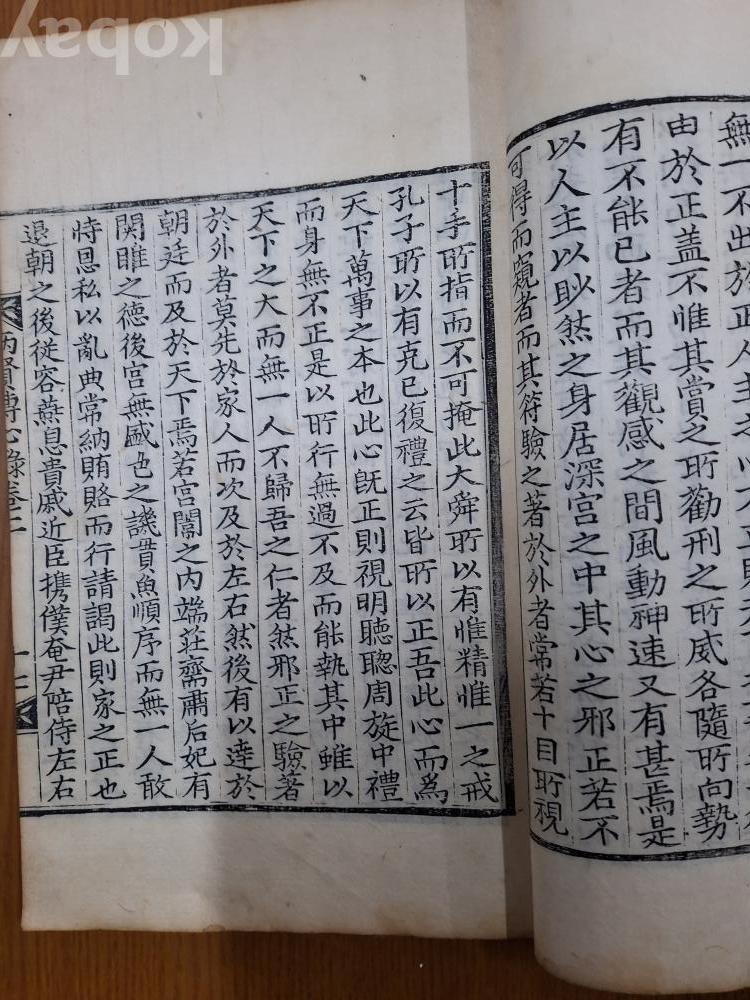 無一不出於正人主之心
由於正盖不惟其賞之所勸刑之所威各隨所向勢
有不能已者而其觀感之間風動神速又有甚焉是
以人主以眇然之身居深宮之中其心之邪正若不
可得而窺者而其符驗之著於外者常若十目所視
十手所指而不可掩此大舜所以有惟精惟一之戒
孔子所以有克已復禮之云皆所以正吾此心而爲
天下萬事之本也此心旣正則視明聽聰周旋中禮
而身無不正是以所行無過不及而能執其中雖以
天下之大而無一人不歸吾之仁者然邪正之驗著
於外者莫先於家人而次及於左右然後有以達於
朝廷而及於天下焉若宮闈之內端莊齋肅后妃有
関雎之德後宮無盛色之譏貫魚順序而無一人敢
恃恩私以亂典常納賄賂而行請謁此則家之正也
退朝之後從容燕息貴戚近臣携僕奄尹陪侍左右
賢傳心錄卷二
kobay